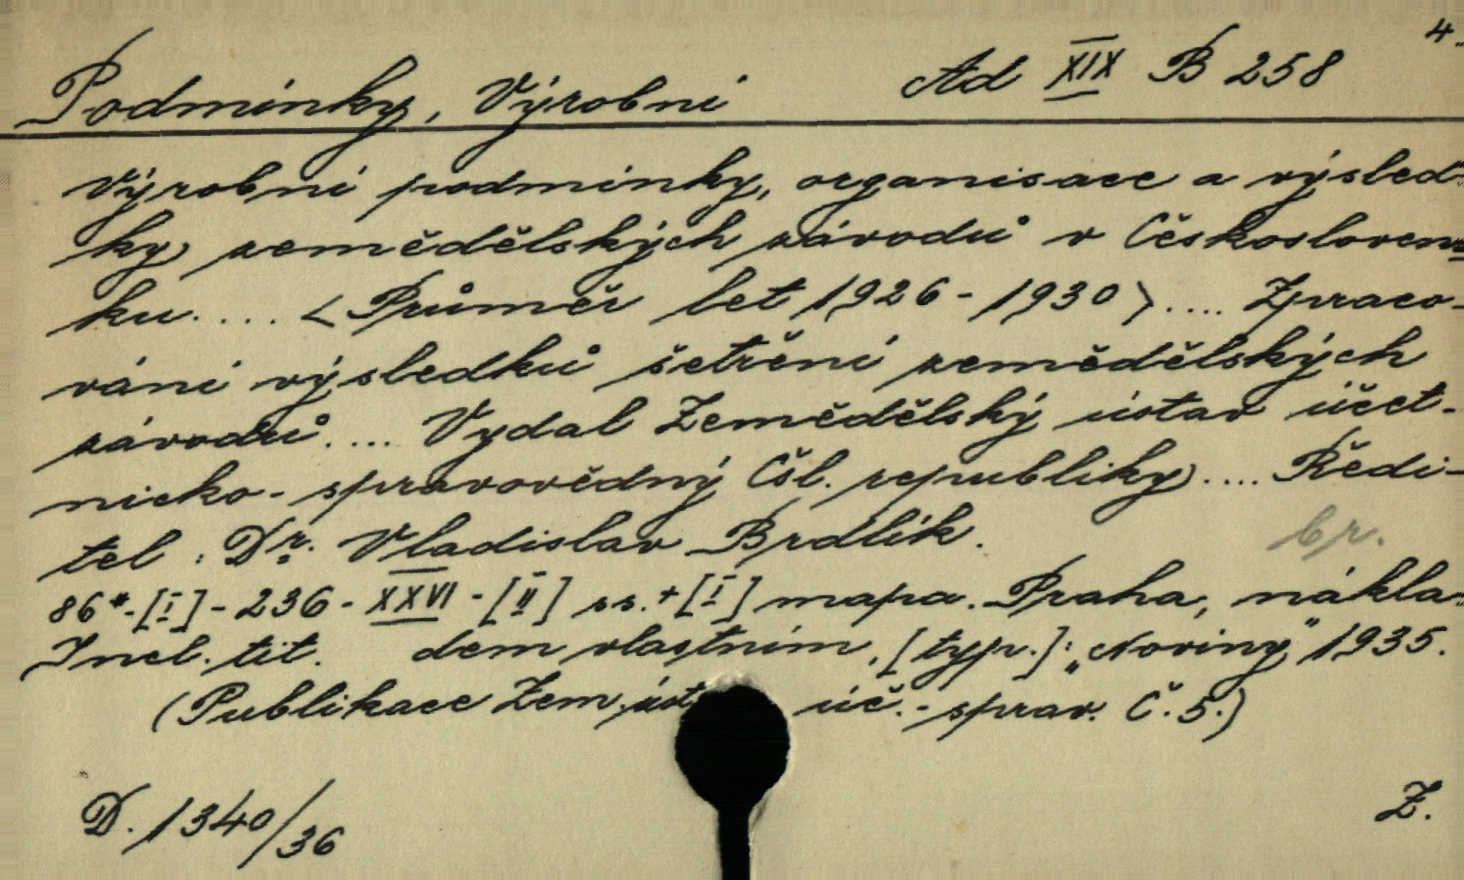 4.
Podmínky, Výrobní Ad XIX B 258
Výrobní podmínky, organisace a výsled-
ky zemědělských závodů v Českosloven-
sku.... <Průměr let 1926-1930>.... Zpraco-
vání výsledků šetření zemědělských
závodů.... Vydal Zemědělský ústav účet-
nicko-spravovědný Čsl. republiky.... Ředi-
tel: Dr. Vladislav Brdlík. br.
86*-[I]-236-XXVI-[II] ss.+[I] mapa. Praha, nákla-
Incl. tit. dem vlastním, [typ.]: „Noviny" 1935.
(Publikace Zem. úst. úč.-sprav. Č. 5.)
D. 1340/36 Z.